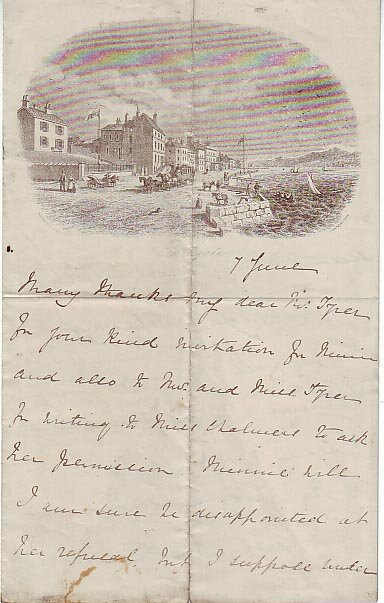 7 June
Many thanks my dear Mr. Tyer
for your kind invitation for Minnie
and also to Mrs. and Miss Tyer
for writing to Miss Chalmers to ask
her permission Minnie will
I am sure be disappointed at
her refusal. but I suppose under